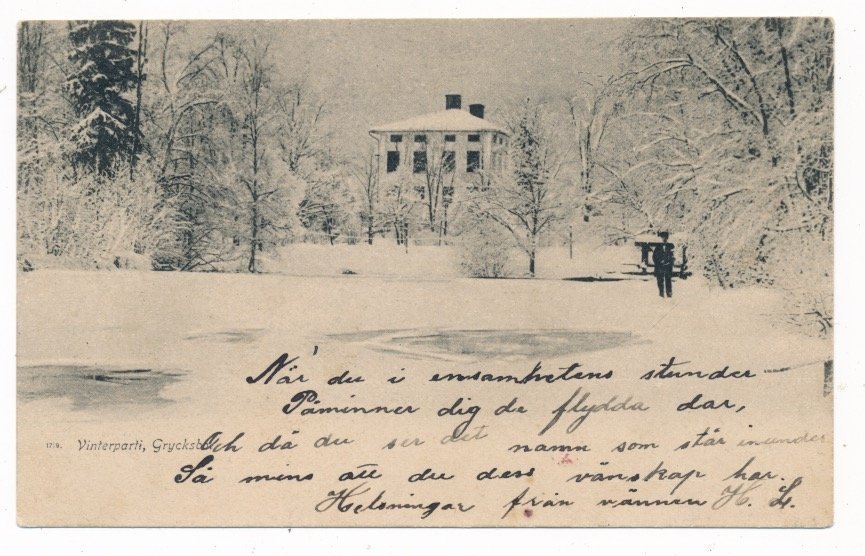 När du i ensamhetens stunder
Påminner dig de flydda dar,
1719. Vinterparti, Grycksbo
Och då du ser det namn som står inunder
Så mins att du dess vänskap har.
Helsningar från vännen H. L.